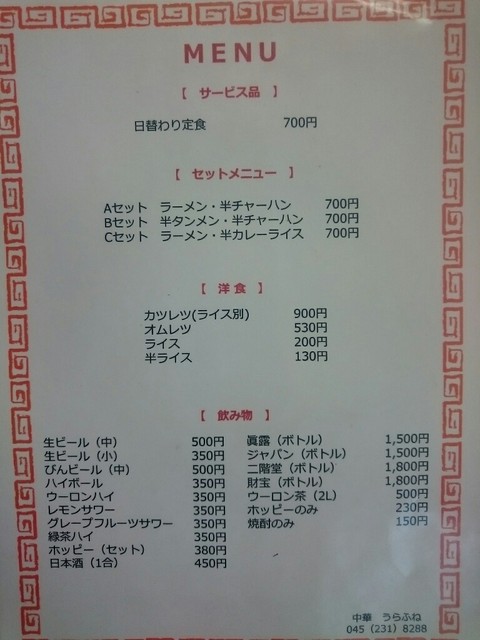 MENU
【 サービス品 】
日替わり定食 700円
【 セットメニュー 】
Aセット ラーメン・半チャーハン 700円
Bセット 半タンメン・半チャーハン 700円
Cセット ラーメン・半カレーライス 700円
【 洋食 】
カツレツ(ライス別) 900円
オムレツ 530円
ライス 200円
半ライス 130円
【 飲み物 】
生ビール（中） 500円
生ビール（小） 350円
びんビール（中） 500円
ハイボール 350円
ウーロンハイ 350円
レモンサワー 350円
グレープフルーツサワー 350円
緑茶ハイ 350円
ホッピー（セット） 380円
日本酒（1合） 450円
眞露（ボトル） 1,500円
ジャパン（ボトル） 1,500円
二階堂（ボトル） 1,800円
財宝（ボトル） 1,800円
ウーロン茶（2L） 500円
ホッピーのみ 230円
焼酎のみ 150円
中華 うらふね
045（231）8288